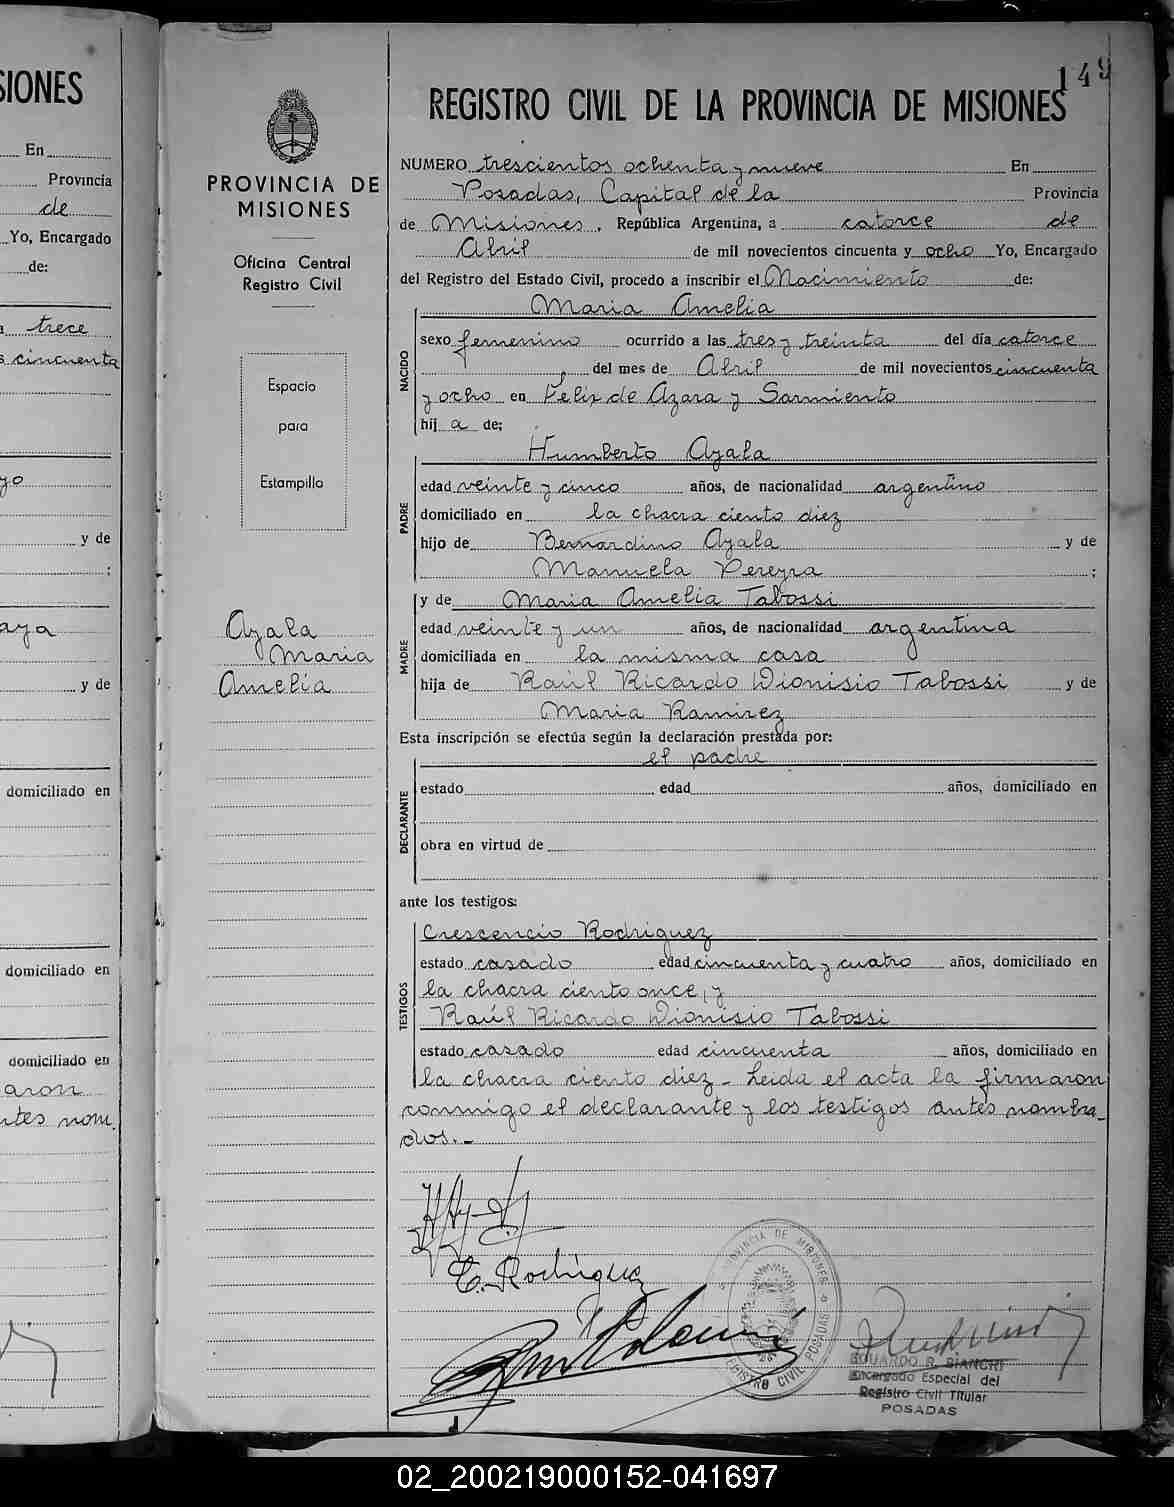 SIONES
En
Provincia
de
Yo, Encargado
de:
trece
cincuenta
yo
y de
;
aya
y de
domiciliado en
domiciliado en
domiciliado en
aron
ntes nom.
149
PROVINCIA DE
MISIONES
Oficina Central
Registro Civil
Espacio
para
Estampilla
Ayala
Maria
Amelia
REGISTRO CIVIL DE LA PROVINCIA DE MISIONES
NUMERO trescientos ochenta y nueve En
Posadas, Capital de la Provincia
de Misiones, República Argentina, a catorce de
Abril de mil novecientos cincuenta y ocho Yo, Encargado
del Registro del Estado Civil, procedo a inscribir el Nacimiento de:
Maria Amelia
NACIDO
sexo femenino ocurrido a las tres y treinta del día catorce
del mes de Abril de mil novecientos cincuenta
y ocho en Felix de Azara y Sarmiento
hij a de:
Humberto Ayala
PADRE
edad veinte y cinco años, de nacionalidad argentino
domiciliado en la chacra ciento diez
hijo de Bernardino Ayala y de
Manuela Pereyra ;
y de Maria Amelia Tabossi
MADRE
edad veinte y un años, de nacionalidad argentina
domiciliada en la misma casa
hija de Raúl Ricardo Dionisio Tabossi y de
Maria Ramirez
Esta inscripción se efectúa según la declaración prestada por:
el padre
DECLARANTE
estado edad años, domiciliado en
obra en virtud de
ante los testigos:
Crescencio Rodriguez
TESTIGOS
estado casado edad cincuenta y cuatro años, domiciliado en
la chacra ciento once, y
Raúl Ricardo Dionisio Tabossi
estado casado edad cincuenta años, domiciliado en
la chacra ciento diez - Leida el acta la firmaron
conmigo el declarante y los testigos antes nombra-
dos.-
C. Rodriguez
PROVINCIA DE MISIONES
REGISTRO CIVIL POSADAS
EDUARDO R. BIANCHI
Encargado Especial del
Registro Civil Titular
POSADAS
02_200219000152-041697